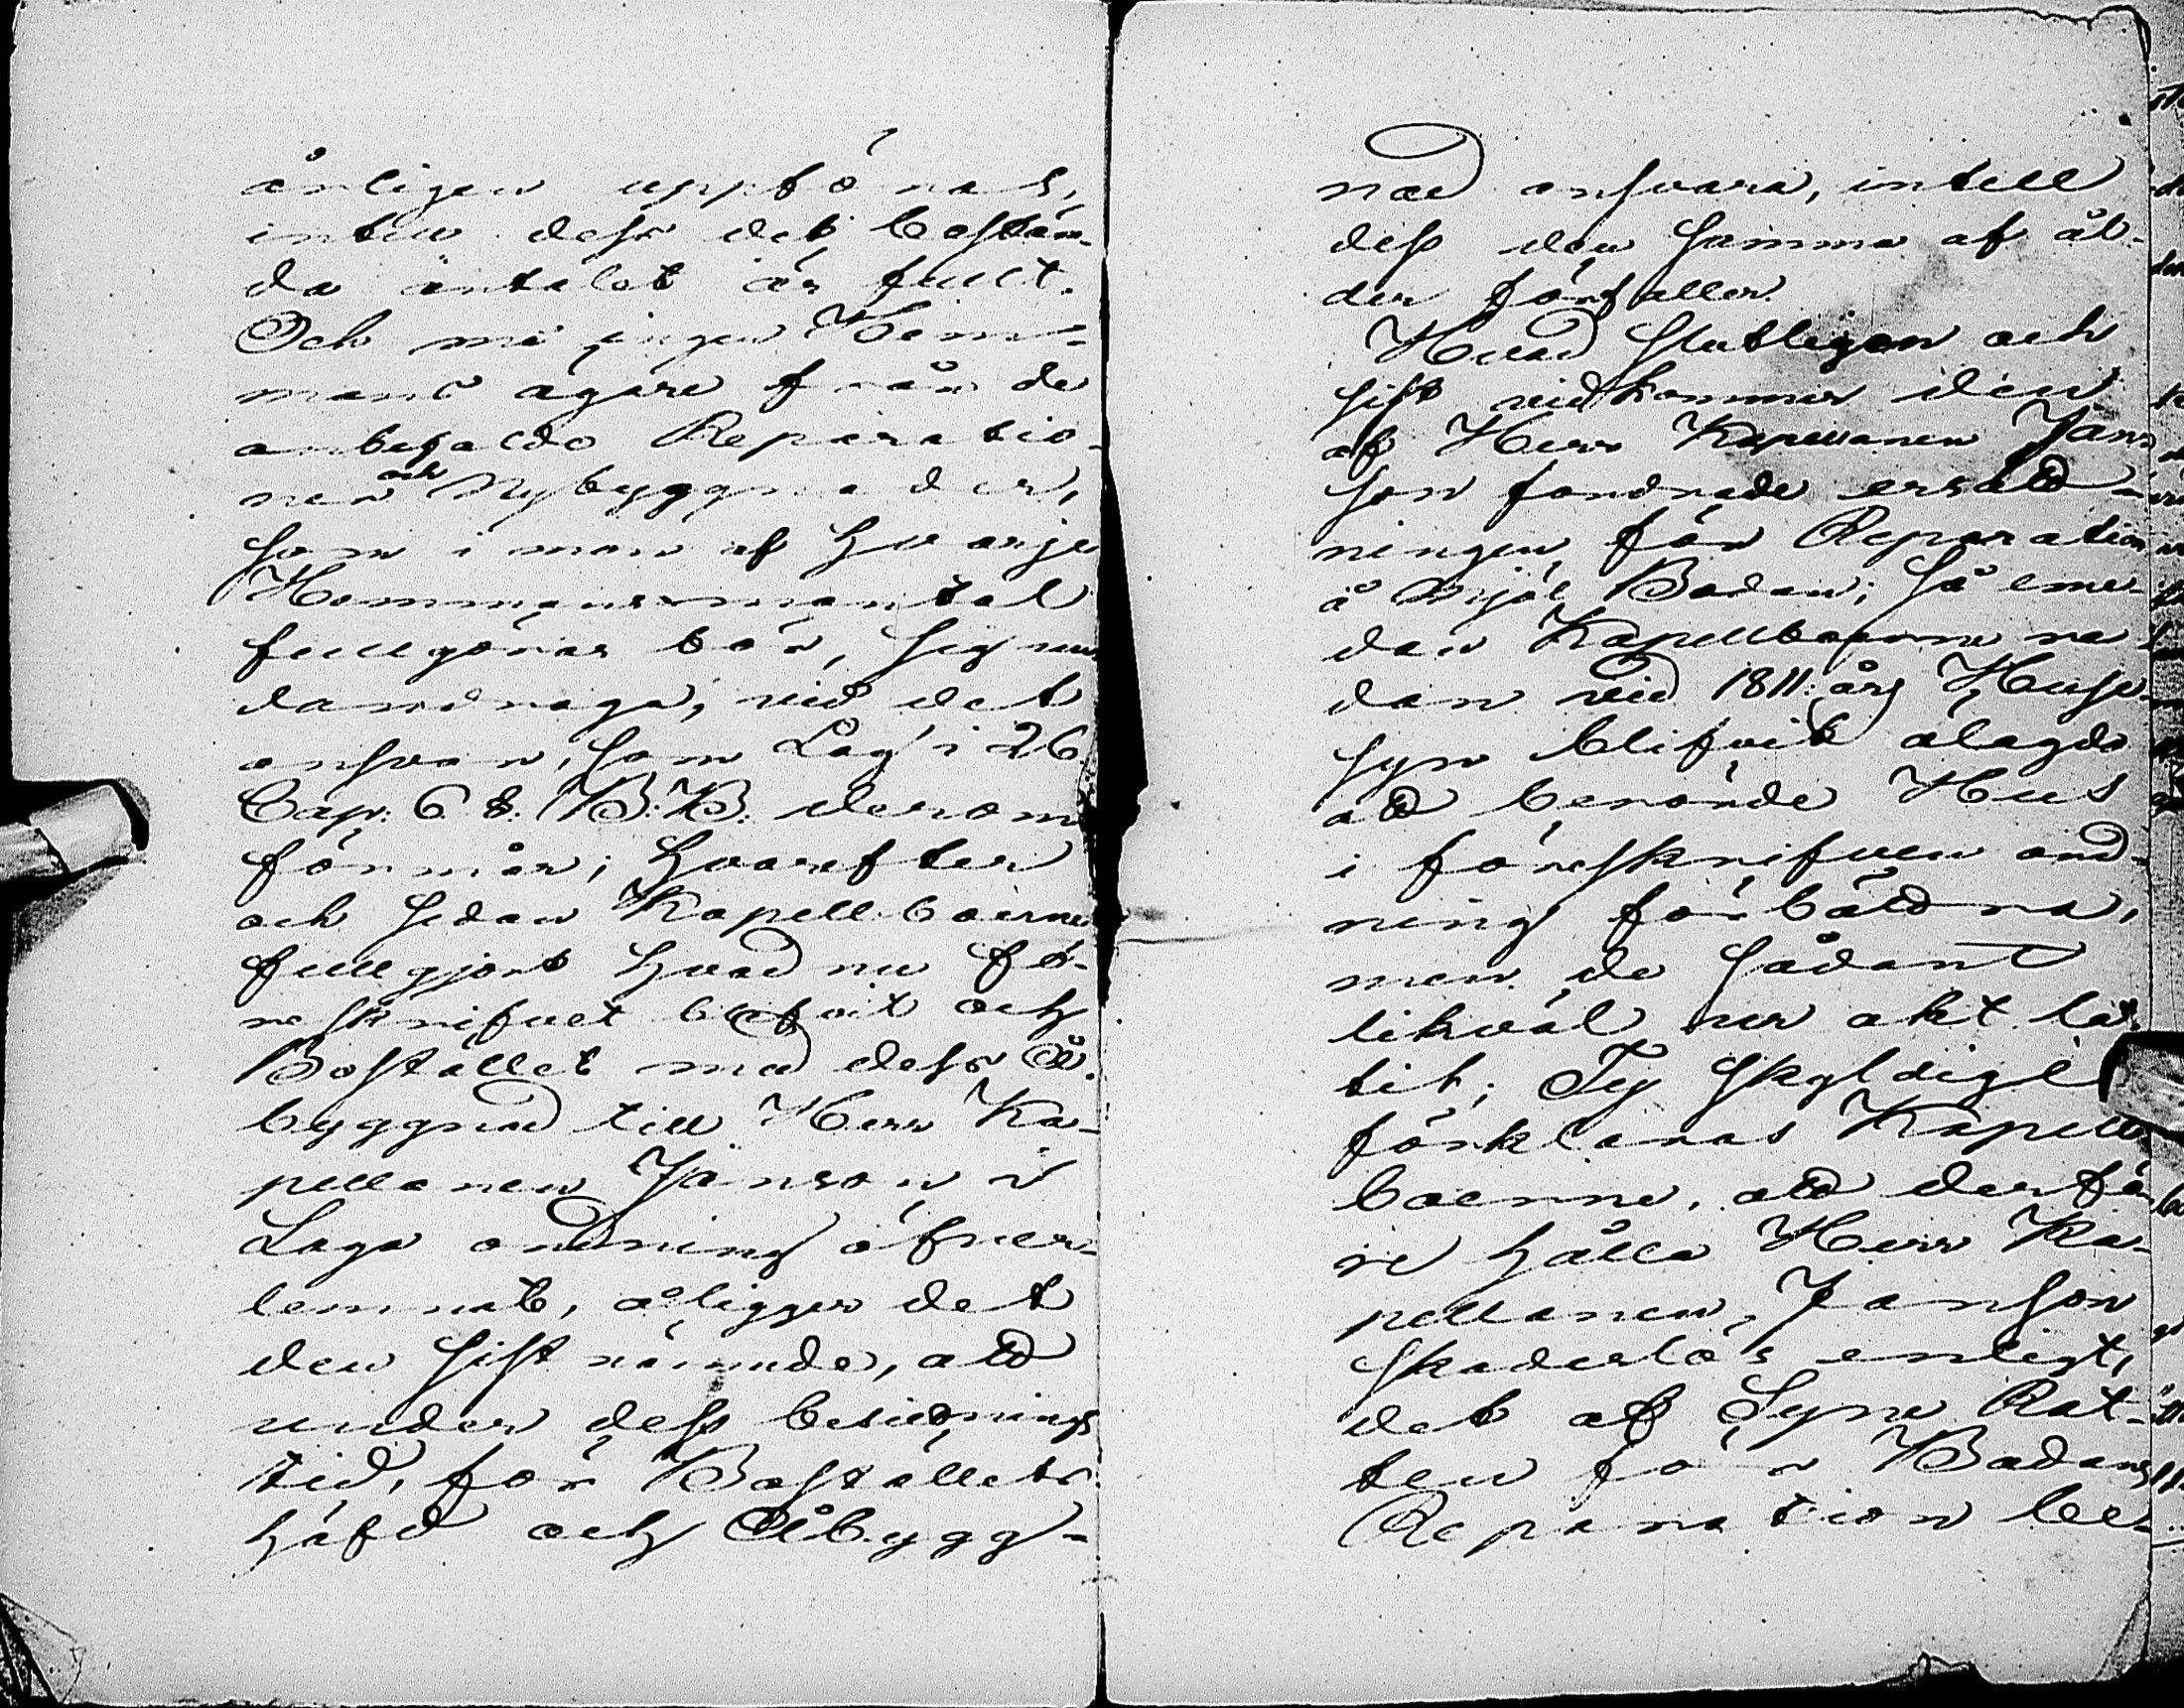 årligen uppföras,
intill dess det bestäm-
da antalet är fullt.
Och må ingen Hem-
mans ägare från de
anbefalde Reparatio-
ner och Nybyggnader,
som i mon af hvarje
Hemmansmantal
fullgöras bör, sig un-
dandraga, vid det
answar, som Lag i 26
Cap: 6 §. B:B: derom
förmår; hvarefter
och sedan Kapellboerne
fullgjort hvad nu fö-
reskrifvet blifvit och
Bostället med dess Å-
byggnad till Herr Ka-
pellanen Janson i
Laga ordning öfver-
lemnat, åligger det
den sist nämnde, att
under dess besittnings
tid, för Boställets
häfd och Åbygg-
nad ansvara, intill
dess den samma af ål-
der förfaller.
Hvad slutligen och
sist vidkommer den
af Herr Kapellanen Jan-
son fordrade ersätt-
ningen för Reparation
å Mjöl Boden; så eme-
dan Kapellboerne re-
dan vid 1811: års Huse-
syn blifvit ålagde
att berörde Hus
i föreskrifven ord-
ning förbättra,
men de sådant
likväl ur akt lå-
tit; Ty skyldige
förklaras Kapell-
boerne, att derfö-
re hålla Herr Ka-
pellanen, Janson
skadeslös enligt,
det af Syne Rät-
ten för Bodans
Reparation be-